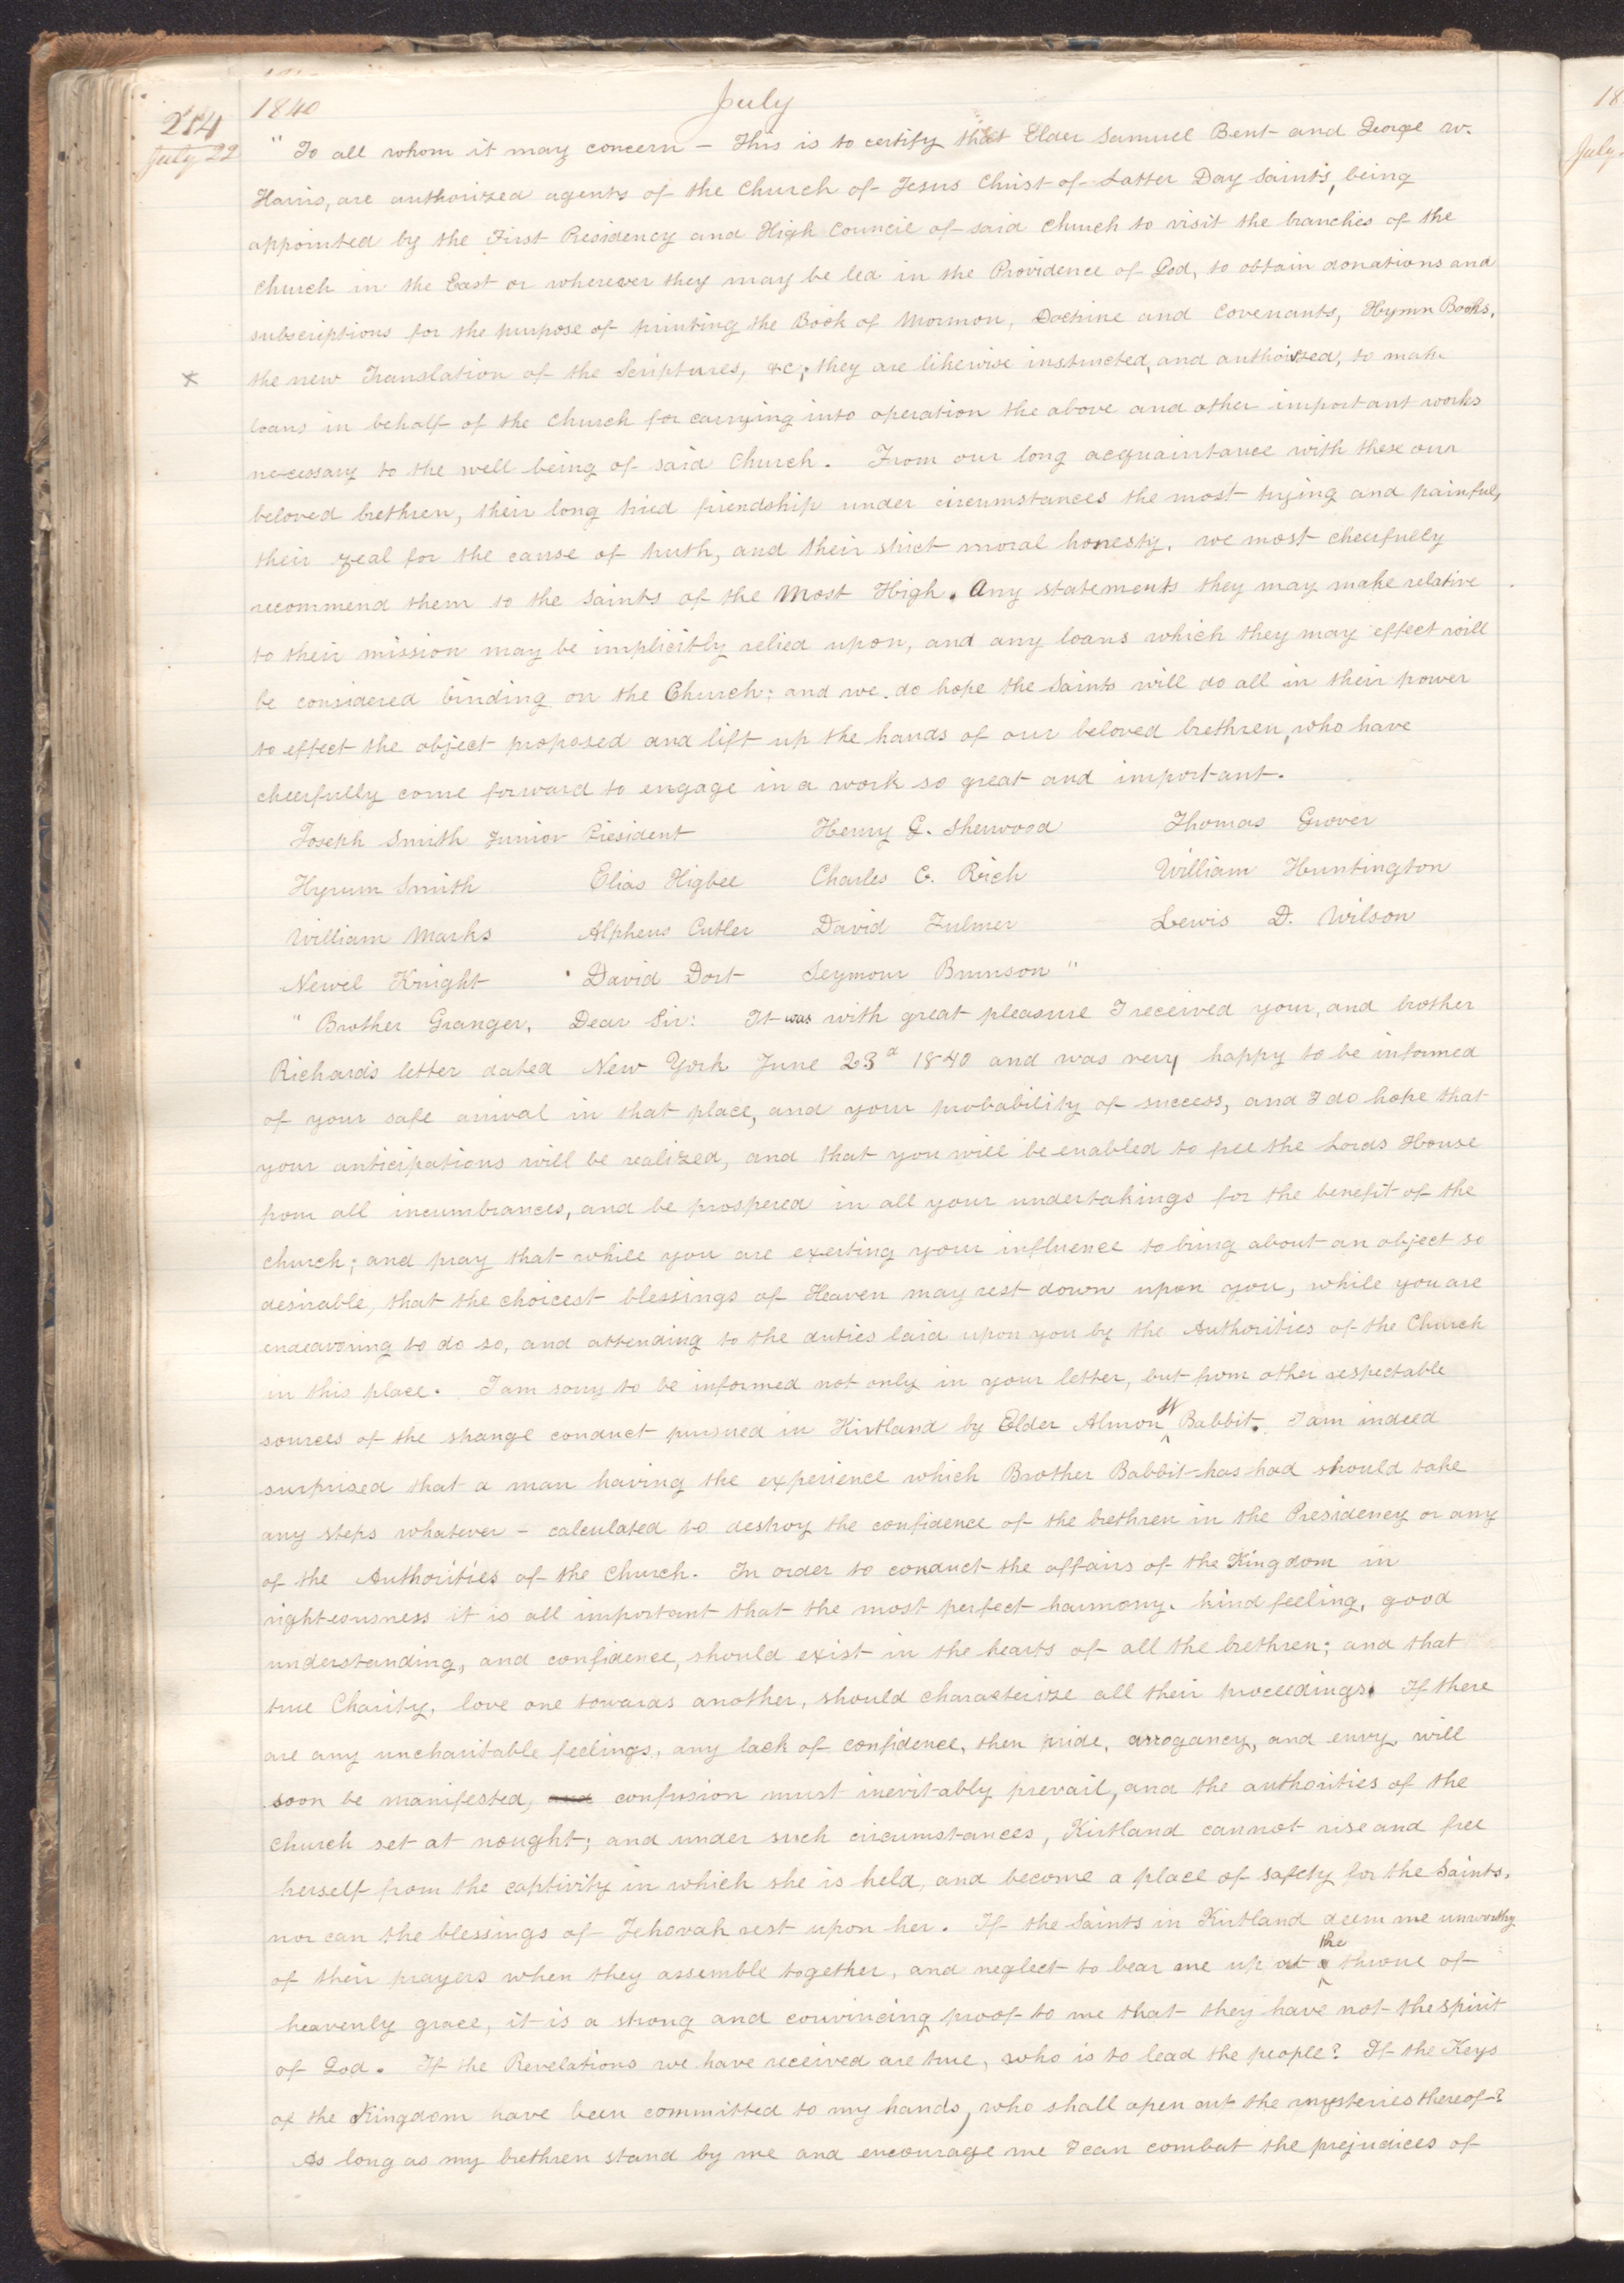 1840 July
254
July 22
18
July
" To all whom it may concern — This is to certify that Elder Samuel Bent and George W.
Harris, are authorized agents of the Church of Jesus Christ of Latter Day Saints, being
appointed by the First Presidency and High Council of said Church to visit the branches of the
Church in the East or wherever they may be led in the Providence of God, to obtain donations and
subscriptions for the purpose of printing the Book of Mormon, Doctrine and Covenants, Hymn Books,
x the new Translation of the Scriptures, &c; they are likewise instructed, and authorized, to make
loans in behalf of the Church for carrying into operation the above and other important works
necessary to the well being of said Church. From our long acquaintance with these our
beloved brethren, their long tried friendship under circumstances the most trying and painful,
their zeal for the cause of truth, and their strict moral honesty, we most cheerfully
recommend them to the Saints of the Most High. Any statements they may make relative
to their mission may be implicitly relied upon, and any loans which they may effect will
be considered binding on the Church; and we do hope the Saints will do all in their power
to effect the object proposed and lift up the hands of our beloved brethren, who have
cheerfully come forward to engage in a work so great and important.
Joseph Smith Junior President Henry G. Sherwood Thomas Grover
Hyrum Smith Elias Higbee Charles C. Rich William Huntington
William Marks Alpheus Cutler David Fulmer Lewis D. Wilson
Newel Knight David Dort Seymour Brunson "
" Brother Granger, Dear Sir: It was with great pleasure I received your, and brother
Richards letter dated New York June 23d 1840 and was very happy to be informed
of your safe arrival in that place, and your probability of success, and I do hope that
your anticipations will be realized, and that you will be enabled to free the Lords House
from all incumbrances, and be prospered in all your undertakings for the benefit of the
church; and pray that while you are exerting your influence to bring about an object so
desirable, that the choicest blessings of Heaven may rest down upon you, while you are
endeavoring to do so, and attending to the duties laid upon you by the Authorities of the Church
in this place. I am sorry to be informed not only in your letter, but from other respectable
sources of the strange conduct pursued in Kirtland by Elder Almon W Babbit. I am indeed
surprized that a man having the experience which Brother Babbit has had should take
any steps whatever — calculated to destroy the confidence of the brethren in the Presidency or any
of the Authorities of the Church. In order to conduct the affairs of the Kingdom in
righteousness it is all important that the most perfect harmony, kind feeling, good
understanding, and confidence, should exist in the hearts of all the brethren; and that
true Charity, love one towards another, should characterize all their proceedings. If there
are any uncharitable feelings, any lack of confidence, then pride, arrogancy, and envy, will
soon be manifested, and confusion must inevitably prevail, and the authorities of the
Church set at nought; and under such circumstances, Kirtland cannot rise and free
herself from the captivity in which she is held, and become a place of safety for the Saints,
nor can the blessings of Jehovah rest upon her. If the Saints in Kirtland deem me unworthy
of their prayers when they assemble together, and neglect to bear me up at the throne of
heavenly grace, it is a strong and convincing proof to me that they have not the spirit
of God. If the Revelations we have received are true, who is to lead the people? If the Keys
of the Kingdom have been committed to my hands, who shall open out the mysteries thereof?
As long as my brethren stand by me and encourage me I can combat the prejudices of